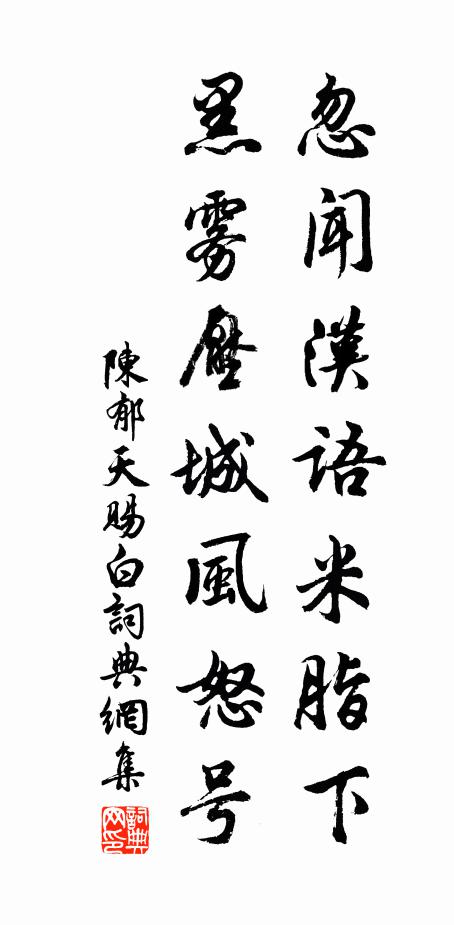 忽聞漢語米脂下
黑雾壓城風怒号
陳郁天賜白詞典網集
詞典網印